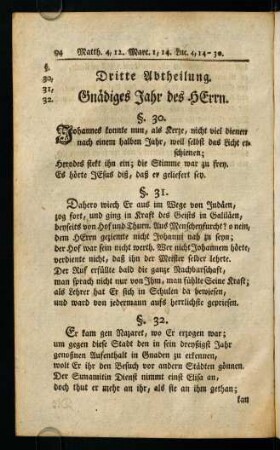 94 Matth. 4, 12. Marc. 1, 14. Luc. 4, 14-30.
§.
30,
31,
32.
Dritte Abtheilung.
Gnädiges Jahr des HErrn.
§. 30.
Johannes konnte nun, als Kerze, nicht viel dienen
nach einem halben Jahr, weil selbst das Licht er-
schienen;
Herodes stekt ihn ein; die Stimme war zu frey.
Es hörte JEsus diß, daß er geliefert sey.
§. 31.
Dahero wiech Er aus im Wege von Judäen,
zog fort, und ging in Kraft des Geists in Galiläen,
derseits von Hof und Thurn. Aus Menschenfurcht? o nein,
dem HErrn geziemte nicht Johanni nah zu seyn;
der Hof war sein nicht werth. Wer nicht Johannem hörte,
verdiente nicht, daß ihn der Meister selber lehrte.
Der Ruf erfüllte bald die ganze Nachbarschaft,
man sprach nicht nur von Ihm, man fühlte Seine Kraft;
als Lehrer hat Er sich in Schulen da bewiesen,
und ward von jedermann aufs herrlichste gepriesen.
§. 32.
Er kam gen Nazaret, wo Er erzogen war;
um gegen diese Stadt den in sein dreyßigst Jahr
genoßnen Aufenthalt in Gnaden zu erkennen,
wolt Er ihr den Besuch vor andern Städten gönnen.
Der Sunamitin Dienst nimmt einst Elisa an,
doch thut er mehr an ihr, als sie an ihm gethan;
kan